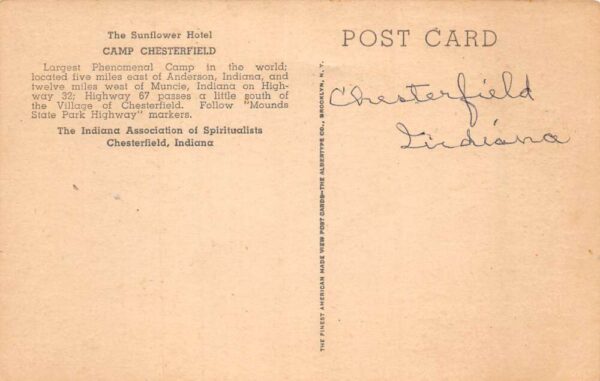 The Sunflower Hotel
CAMP CHESTERFIELD
Largest Phenomenal Camp in the world;
located five miles east of Anderson, Indiana, and
twelve miles west of Muncie, Indiana on High-
way 32; Highway 67 passes a little south of
the Village of Chesterfield. Follow "Mounds
State Park Highway" markers.
The Indiana Association of Spiritualists
Chesterfield, Indiana
THE FINEST AMERICAN MADE VIEW POST CARDS—THE ALBERTYPE CO., BROOKLYN, N. Y.
POST CARD
Chesterfield
Indiana